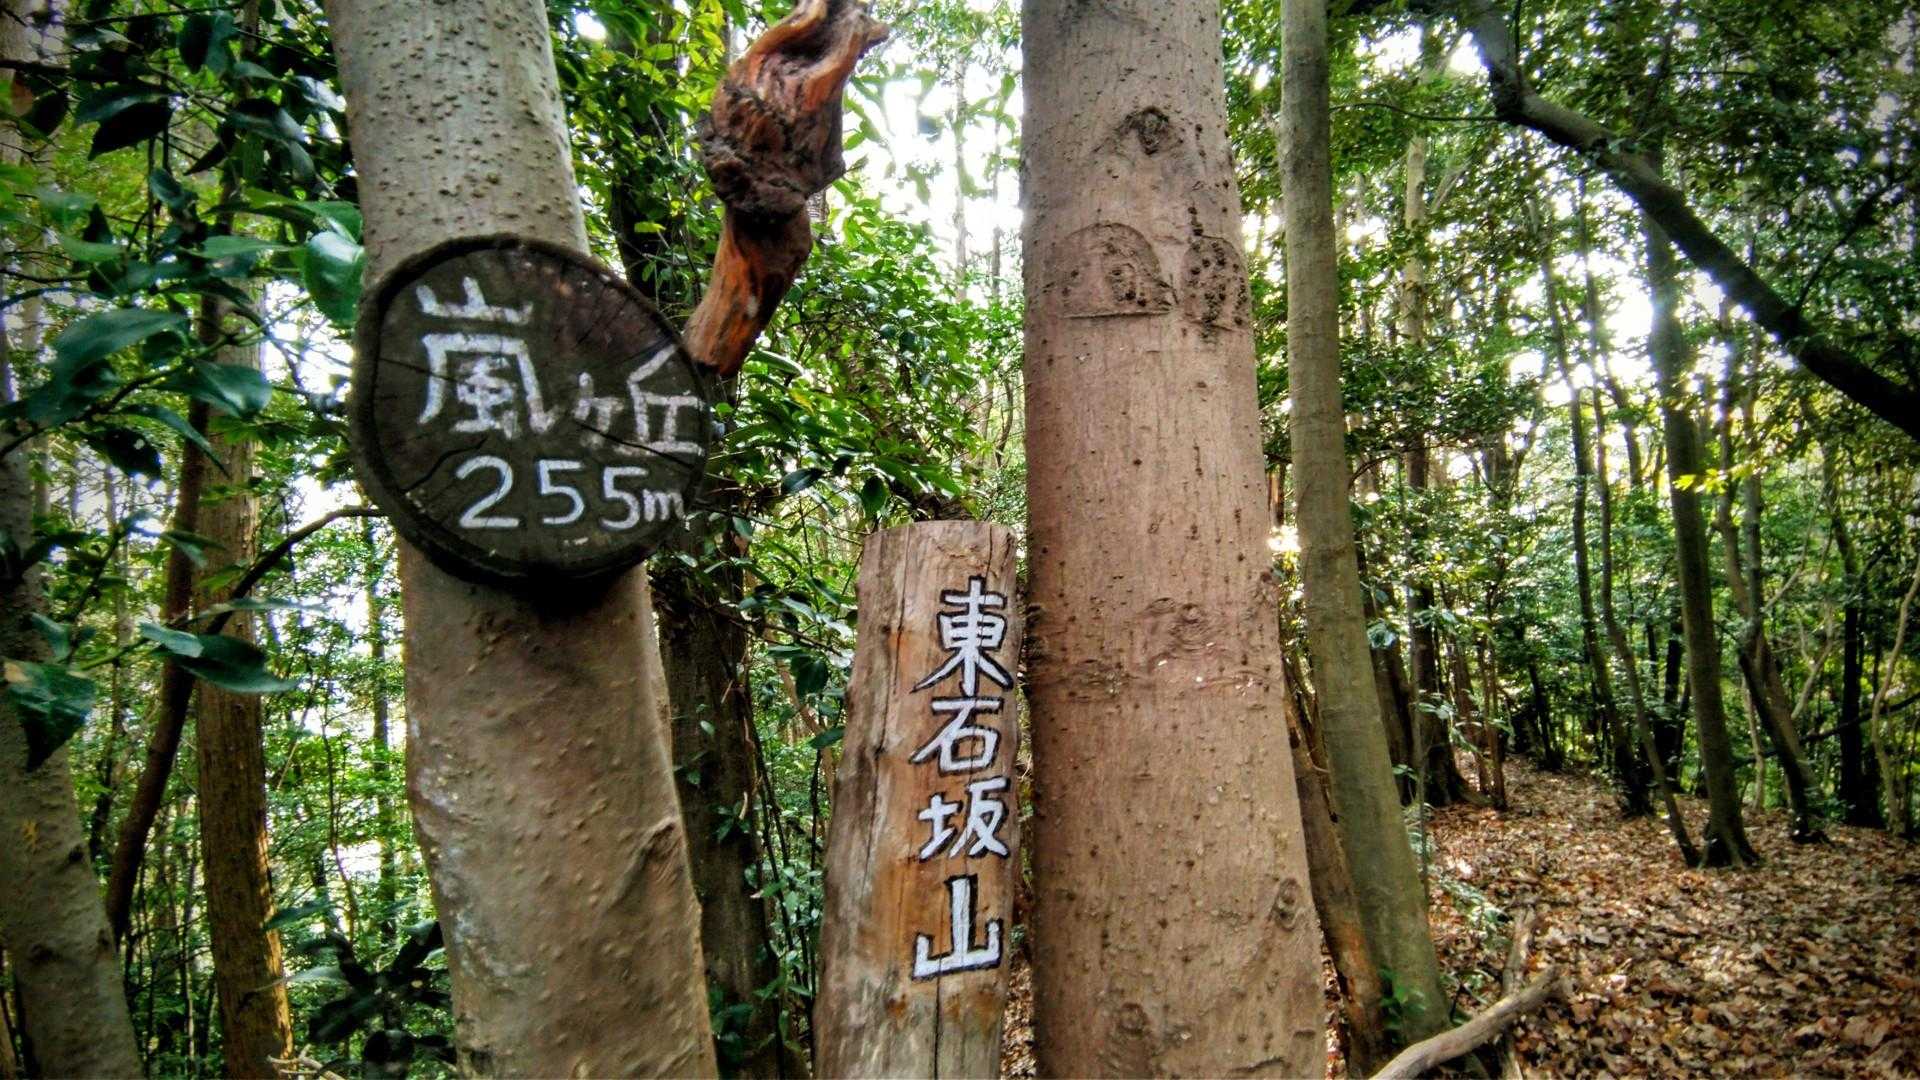 嵐ヶ丘
255m
東石坂山